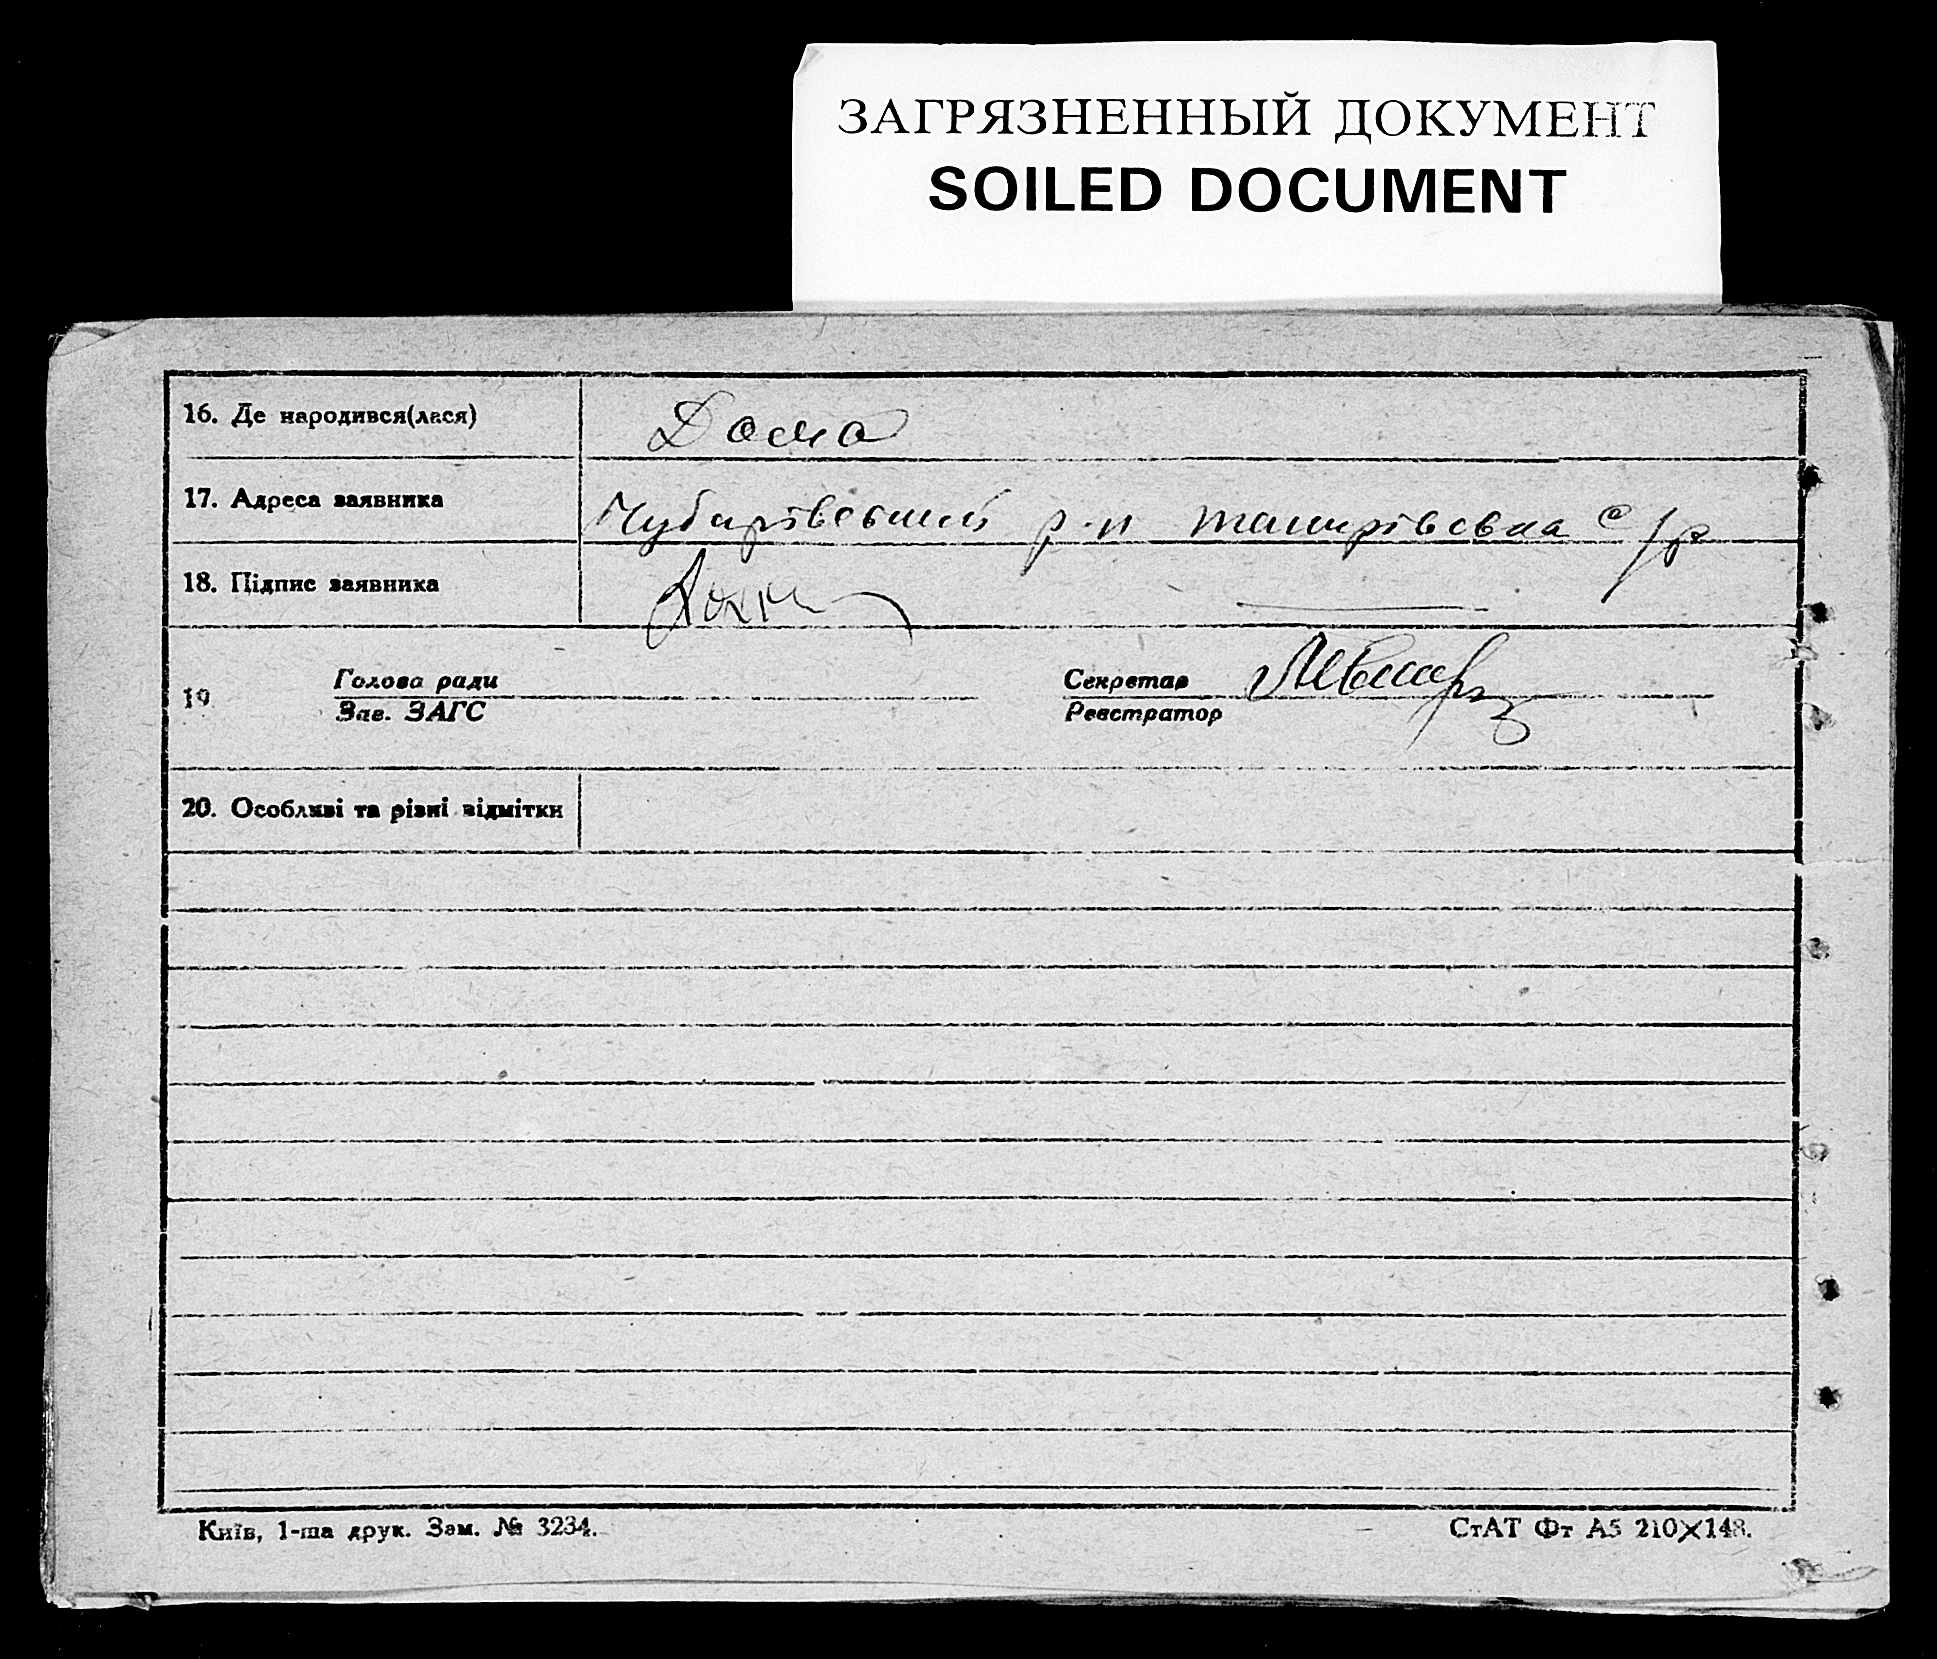 ЗАГРЯЗНЕННЫЙ ДОКУМЕНТ
SOILED DOCUMENT
16. Де народився(лася) Дома
17. Адреса заявника Чубарівський р-н с/р
18. Підпис заявника
19 Голова ради Секретар
Зав. ЗАГС Реєстратор
20. Особливі та різні відмітки
Київ, 1-ша друк. Зам. № 3234.
СтАТ Фт А5 210×148.